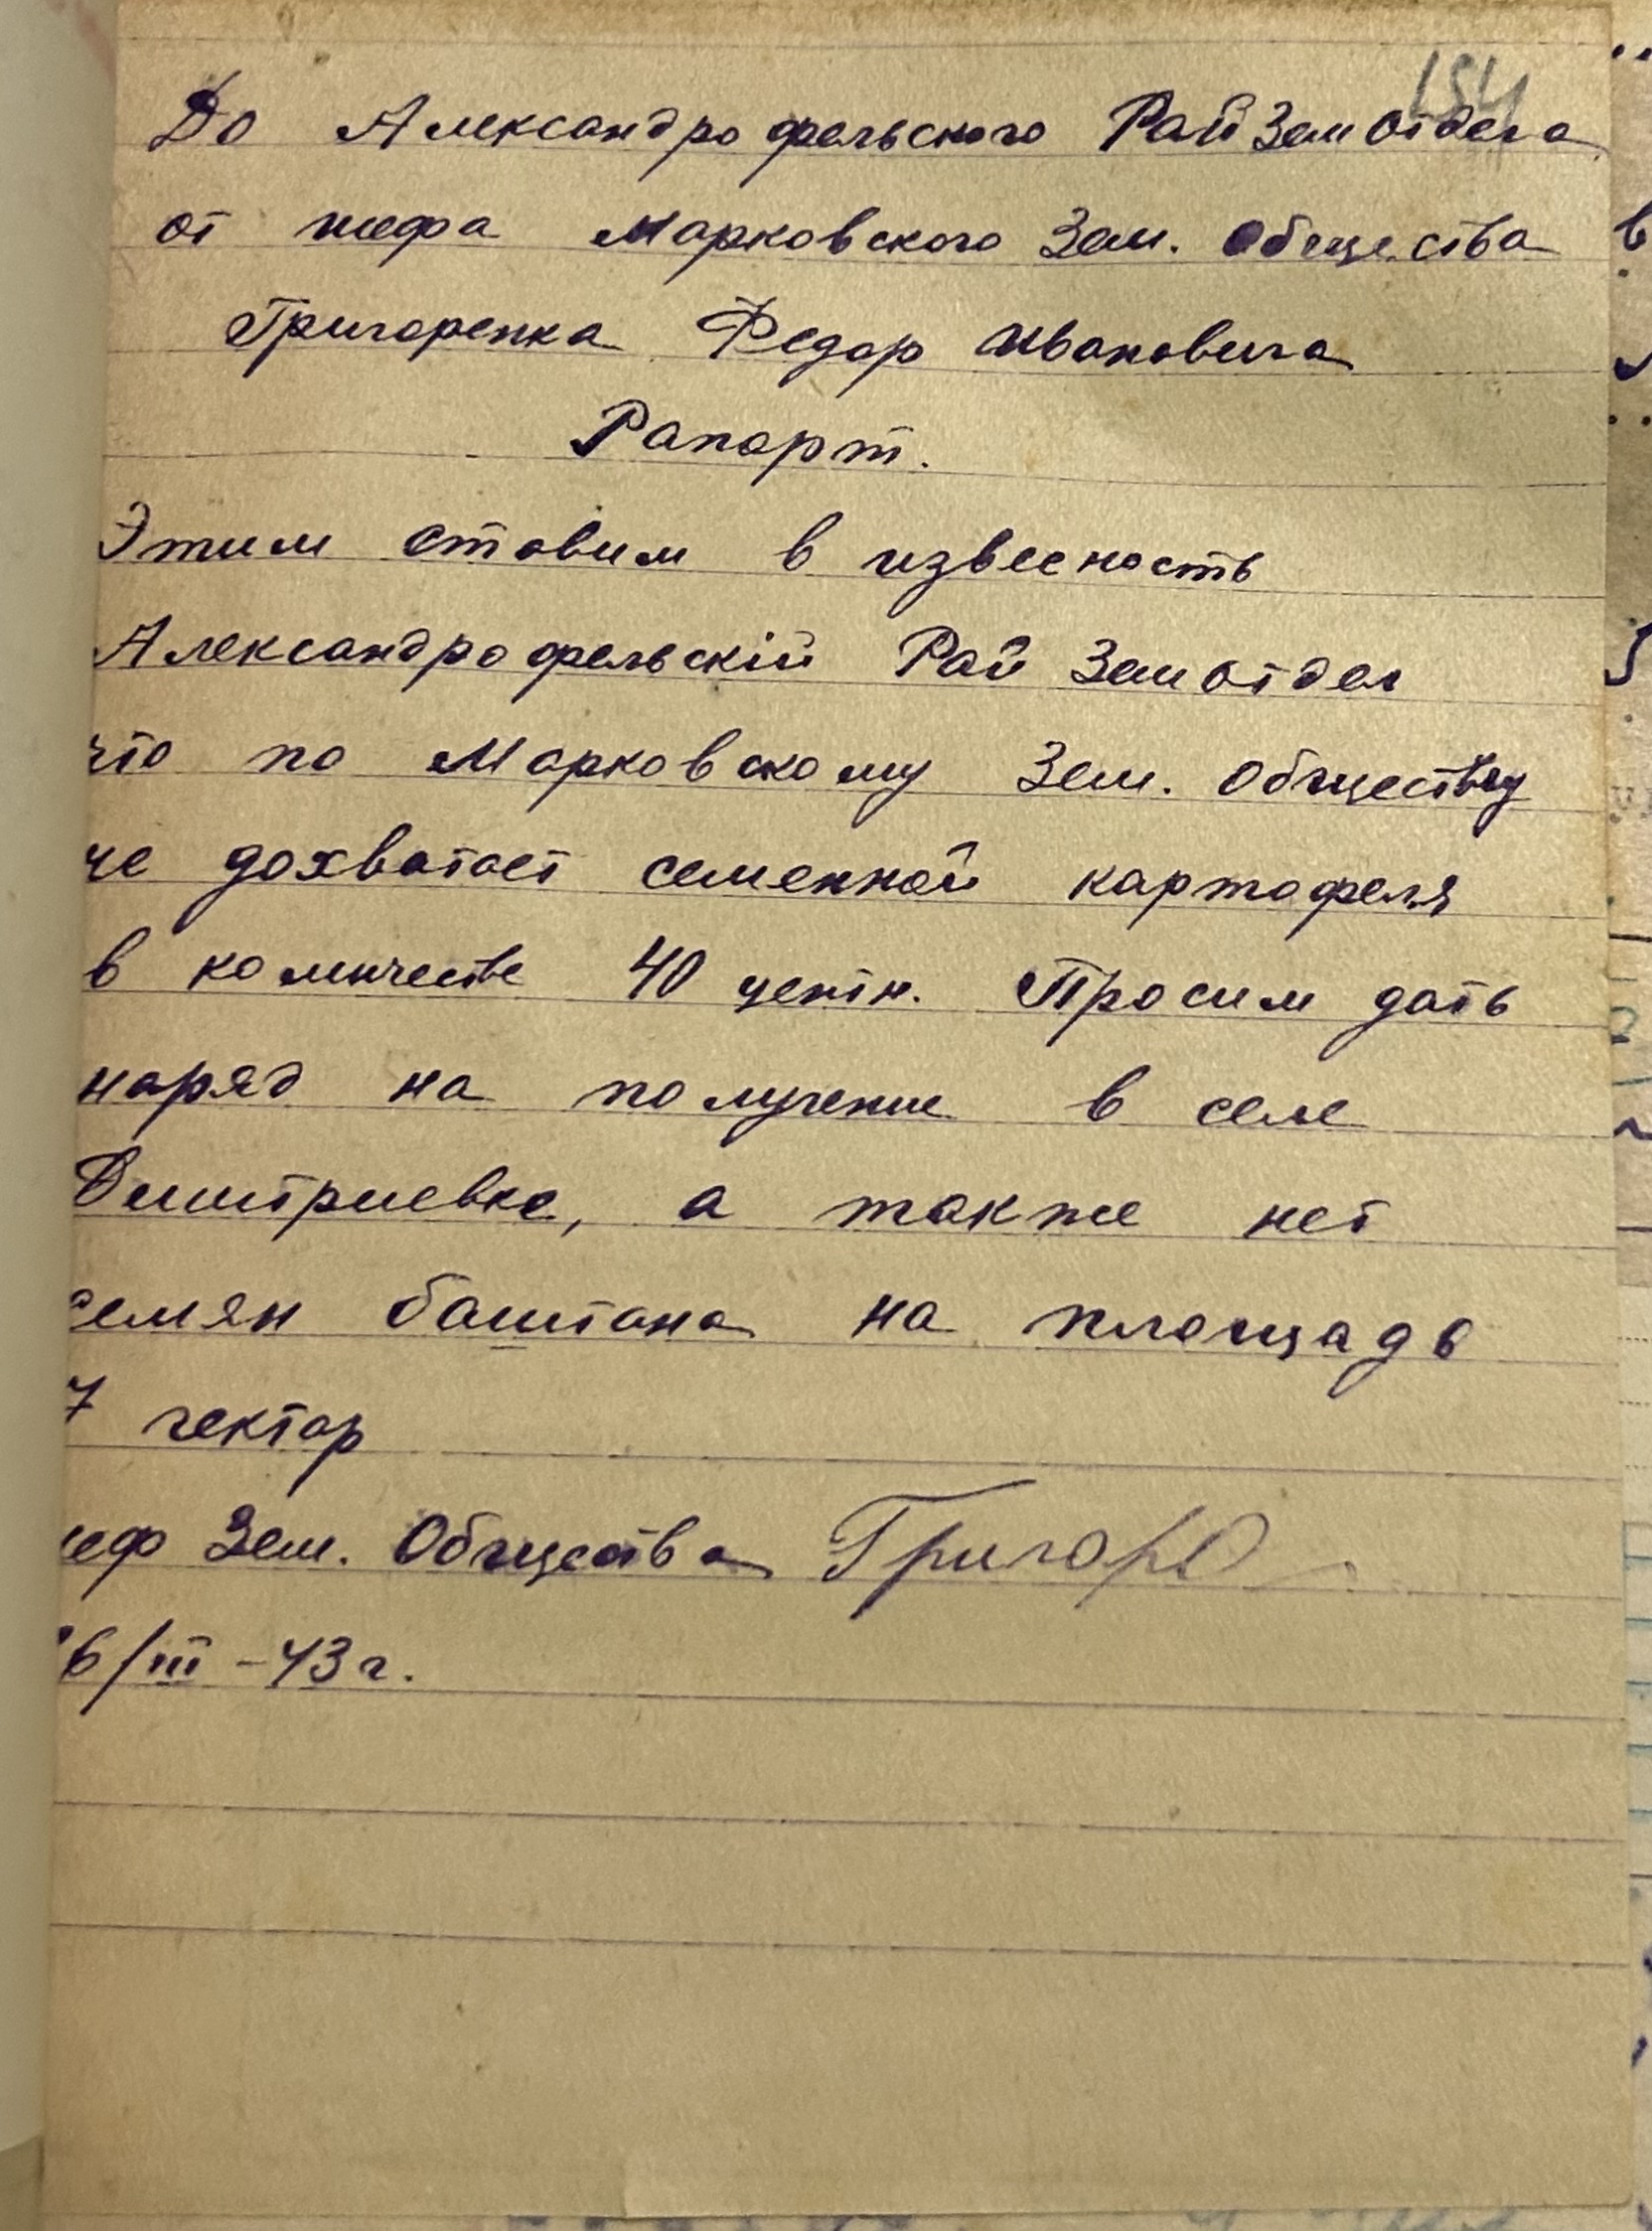 154
До Александрофельского РайЗемОтдела
от шефа Марковского Зем. Общества
Григоренка Федор Ивановича
Рапорт.
Этим ставим в извесность
Александрофельскій Рай ЗемОтдел
что по Марковскому Зем. Обществу
не дохватает семенной картофеля
в количестве 40 центн. Просим дать
наряд на получение в селе
Димтриевке, а также нет
семян баштана на площадь
7 гектар
шеф Зем. Общества Григор
6/III-43г.